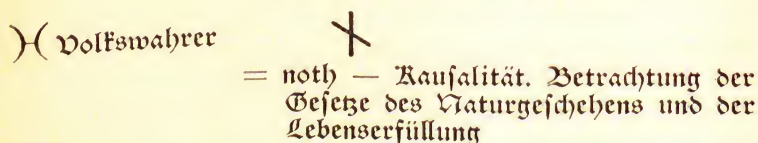 )-( Volkswahrer
= noth — Kausalität. Betrachtung der
Gesetze des Naturgeschehens und der
Lebenserfüllung